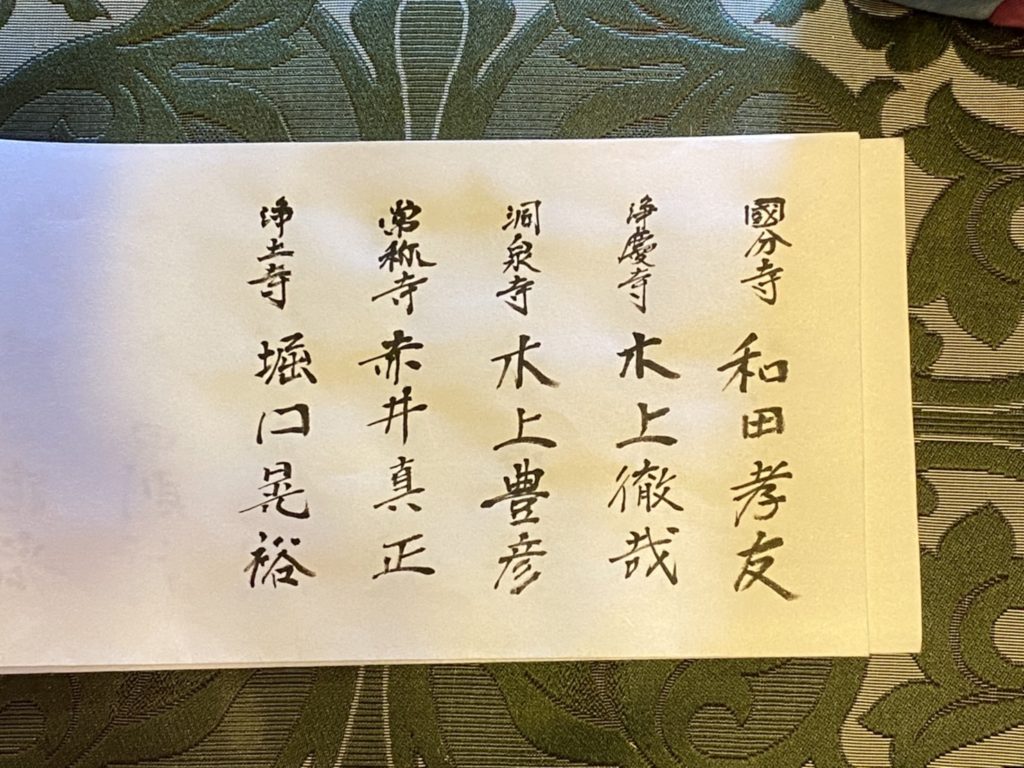 國分寺 和田孝友
浄慶寺 水上徹哉
洞泉寺 水上豊彦
常称寺 赤井真正
浄土寺 堀口晃裕